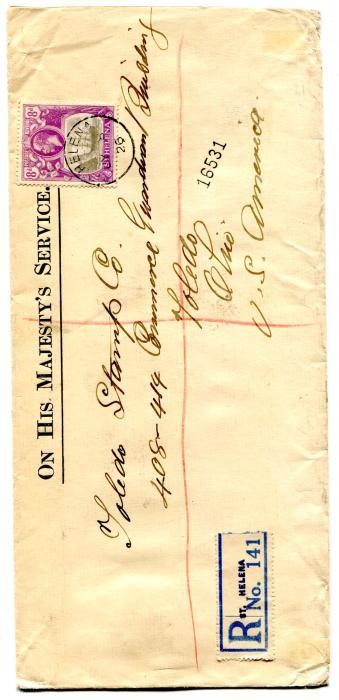 ON HIS MAJESTY'S SERVICE.
8d 8d
ST HELENA
HELENA
26
Toledo Stamp Co.
408-414 Commerce Guardian Building
Toledo
Ohio
U.S. America.
16531
R ST. HELENA
No. 141